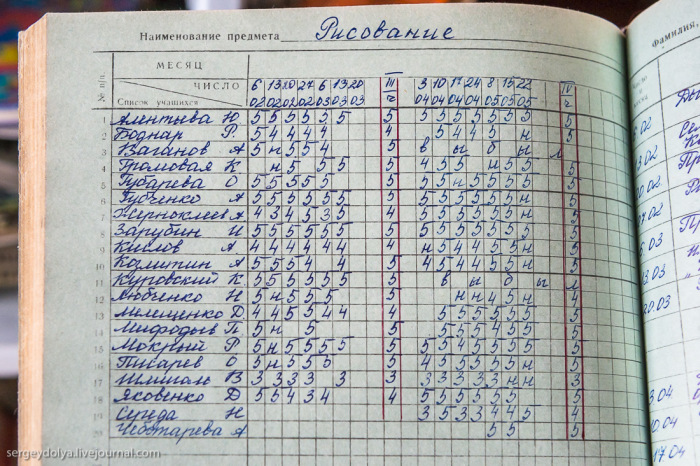 Наименование предмета Рисование
Фамилия,
МЕСЯЦ
ЧИСЛО
№ п/п.
Список учащихся
6 13 20 27 6 13 20 III 3 10 17 24 8 15 22 IV
02 02 02 02 03 03 03 ч 04 04 04 04 05 05 05 ч
Алентьева Ю 5 5 5 5 5 5 5 5 5 5 5 5 5 5 5
Боднар Р. 5 4 4 4 4 4 5 4 4 5 н 5
Ваганов А 5 н 5 5 4 5 в ы б ы л
Громовая К н 5 5 5 4 5 5 н 5 5 5
Губарева О 5 5 5 5 5 5 5 5 н 5 5 5 5 5
Губченко А 5 5 5 5 5 5 5 5 5 5 5 5 5 н 5
А 4 3 4 5 3 5 4 5 5 5 5 5 5 н 5
Зарубин И 5 5 5 5 5 5 5 5 5 5 5 5 5 5 5
Кислов А 4 4 4 4 4 4 4 н 5 4 4 5 5 н 5
Калитин А 5 5 5 4 4 5 4 5 4 4 5 5 н 5
Куровский К 5 5 5 5 5 5 5 в ы б ы л
Любченко Н 5 н 5 5 5 5 н н 4 5 н 4
Д 4 4 5 5 4 4 5 5 5 5 5 5 5 5
П 5 н 5 5 5 5 5 4 5 5 5
Мокрый Р 5 н 5 5 5 5 5 5 5 4 5 5 5 5 5
Писарев О 5 н 5 5 5 5 4 5 5 5 5 5 н 5
Шмигаль В 3 3 3 3 3 3 3 3 3 3 3 н н 3
Яковенко Д 5 5 4 3 4 4 5 5 5 5 5 5 5
Середа Н 3 5 3 3 4 4 5 4
Чеботарева А 5 5 5
sergeydolya.livejournal.com